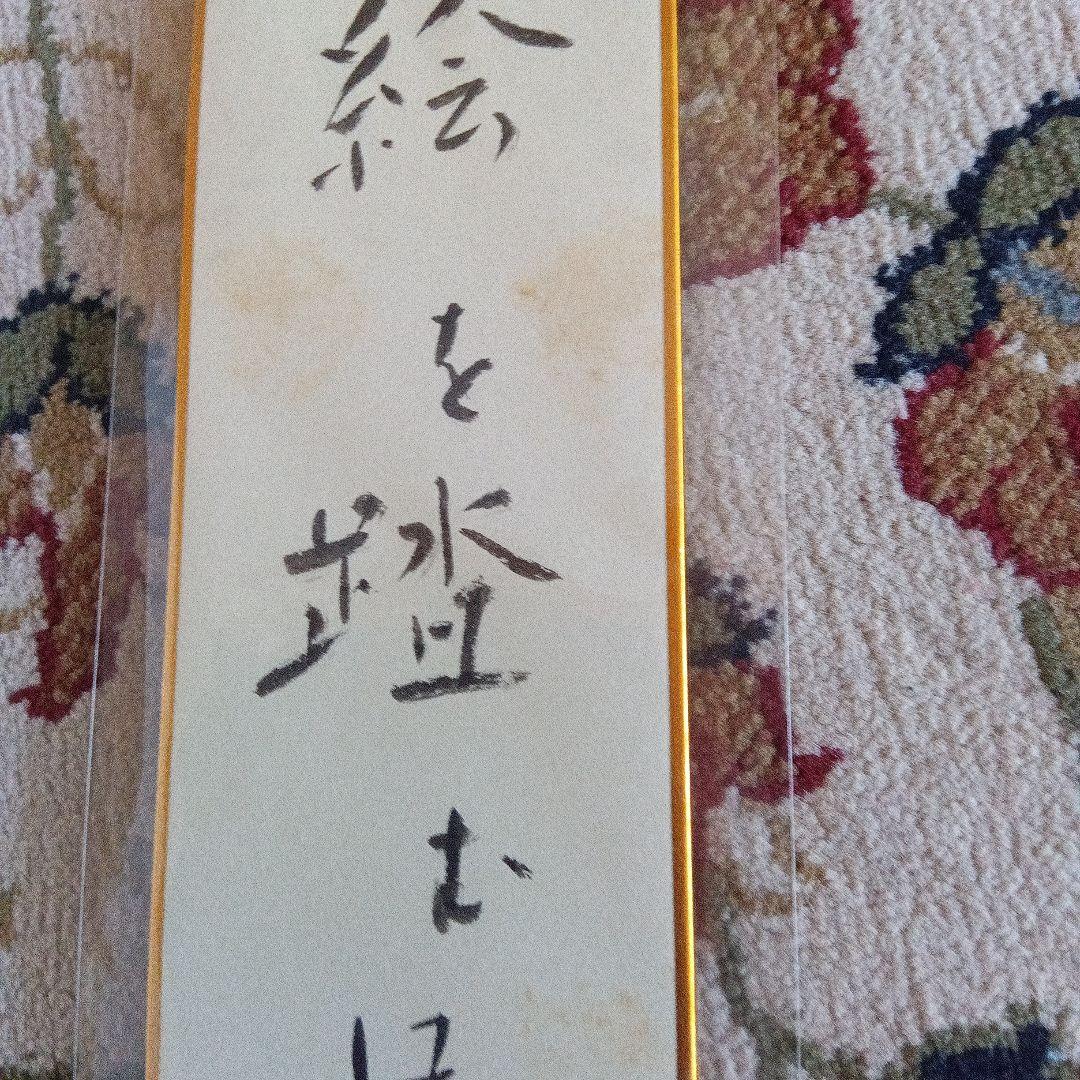 絵を踏む